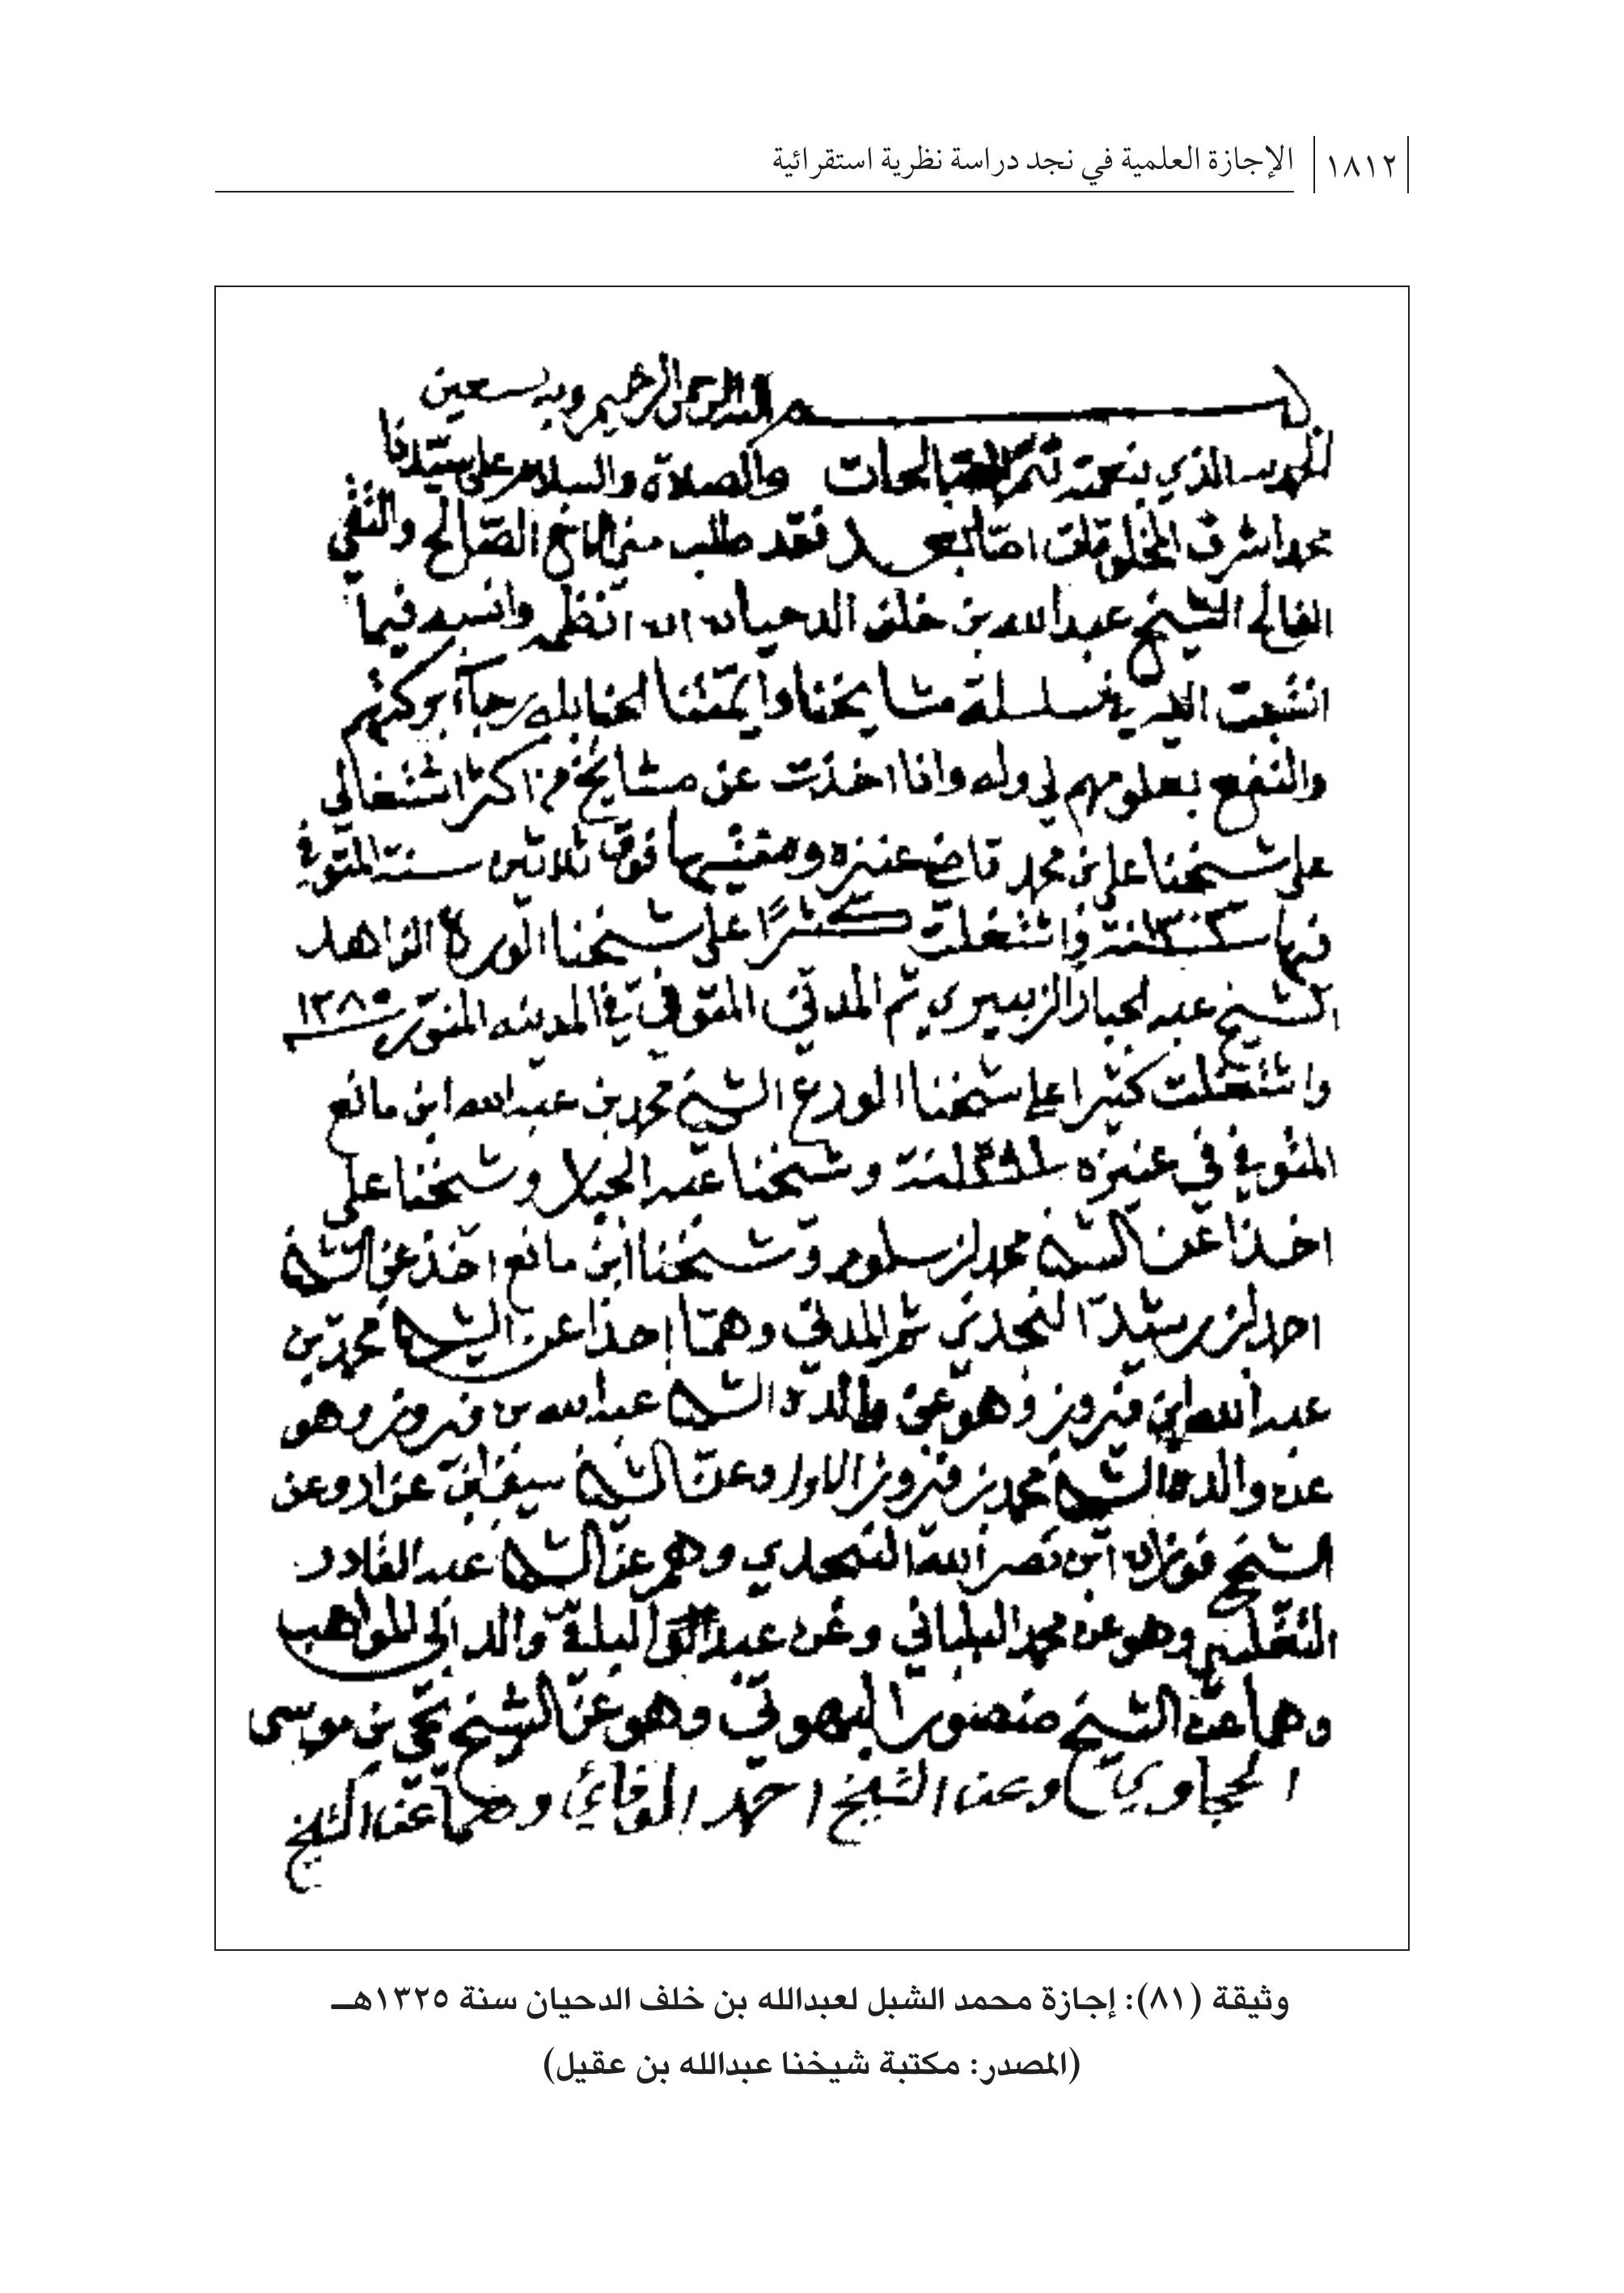 ١٨١٢ الإجازة العلمية في نجد دراسة نظرية استقرائية
بسم الله الرحمن الرحيم وبه نستعين
الحمد لله الذي بنعمته تتم الصالحات والصلاة والسلام على سيدنا
محمد اشرف المخلوقات اما بعد فقد طلب مني الاخ الصالح والتقي
الشيخ عبدالله بن خلف الدحيان ان انظمه وانسبه فيما
انتسبت اليه من سلسلة مشايخنا وايمتنا الحنابله رجآء بركتهم
والنفع بعلومهم لي وله وانا اخذت عن مشايخ من اكثر اشتغالي
على شيخنا علي بن محمد قاضي عنيزه ومفتيها فوق ثلاثين سنة المتوفي
فيها سنة واشتغلت كثيرًا على شيخنا الورع الزاهد
الشيخ عبد الجبار الزبيري ثم المدني المتوفي في المدينه المنوره
واشتغلت كثيرا على شيخنا الورع الشيخ محمد بن عبدالله ابن مانع
المتوفي في عنيزه وشيخنا عبد الجبار وشيخنا علي
اخذا عن الشيخ محمد بن سلوم وشيخنا ابن مانع اخذ عن الشيخ
احمد بن رشيد النجدي ثم المدني وهما اخذا عن الشيخ محمد بن
عبدالله ابن فيروز وهو عن والده الشيخ عبدالله بن فيروز وهو
عن والده الشيخ محمد بن فيروز الاول وعن الشيخ سيف ابن عزاز وعن
الشيخ فوزان ابن نصر الله النجدي وهم عن الشيخ عبد القادر
التغلبي وهو عن محمد البلباني وعن عبد الباقي والد ابي المواهب
وهما عن الشيخ منصور البهوتي وهو عن الشيخ يحي بن موسى
الحجاوي وعن الشيخ احمد الوفائي وهما عن الشيخ
وثيقة (٨١): إجازة محمد الشبل لعبدالله بن خلف الدحيان سنة ١٣٢٥هـ
(المصدر: مكتبة شيخنا عبدالله بن عقيل)